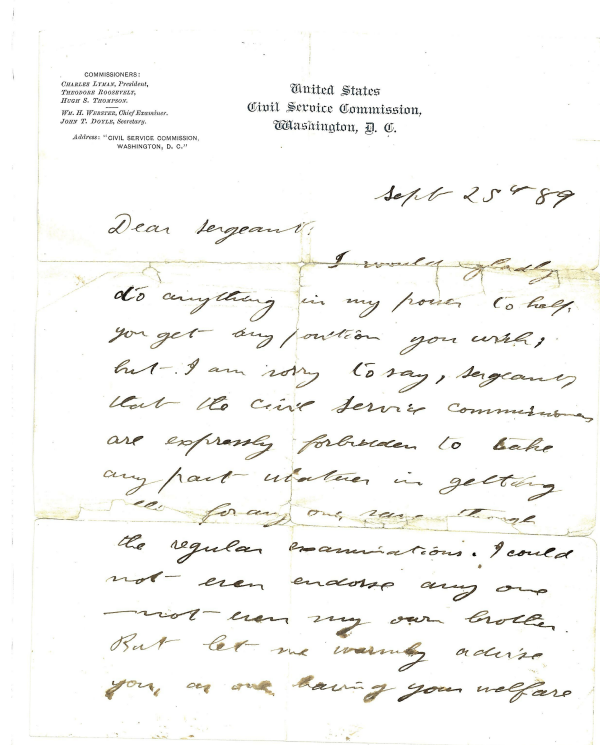 COMMISSIONERS:
CHARLES LYMAN, President,
THEODORE ROOSEVELT,
HUGH S. THOMPSON.
WM. H. WEBSTER, Chief Examiner.
JOHN T. DOYLE, Secretary.
Address: "CIVIL SERVICE COMMISSION,
WASHINGTON, D. C."
United States
Civil Service Commission,
Washington, D. C.
Sept 25th 89
Dear Sergeant:
I would gladly
do anything in my power to help
you get any position you wish;
but I am sorry to say, Sergeant,
that the Civil Service Commissioners
are expressly forbidden to take
any part whatever in getting
for any one, save through
the regular examinations. I could
not even endorse any one
—not even my own brother.
But let me warmly advise
you, as one having your welfare